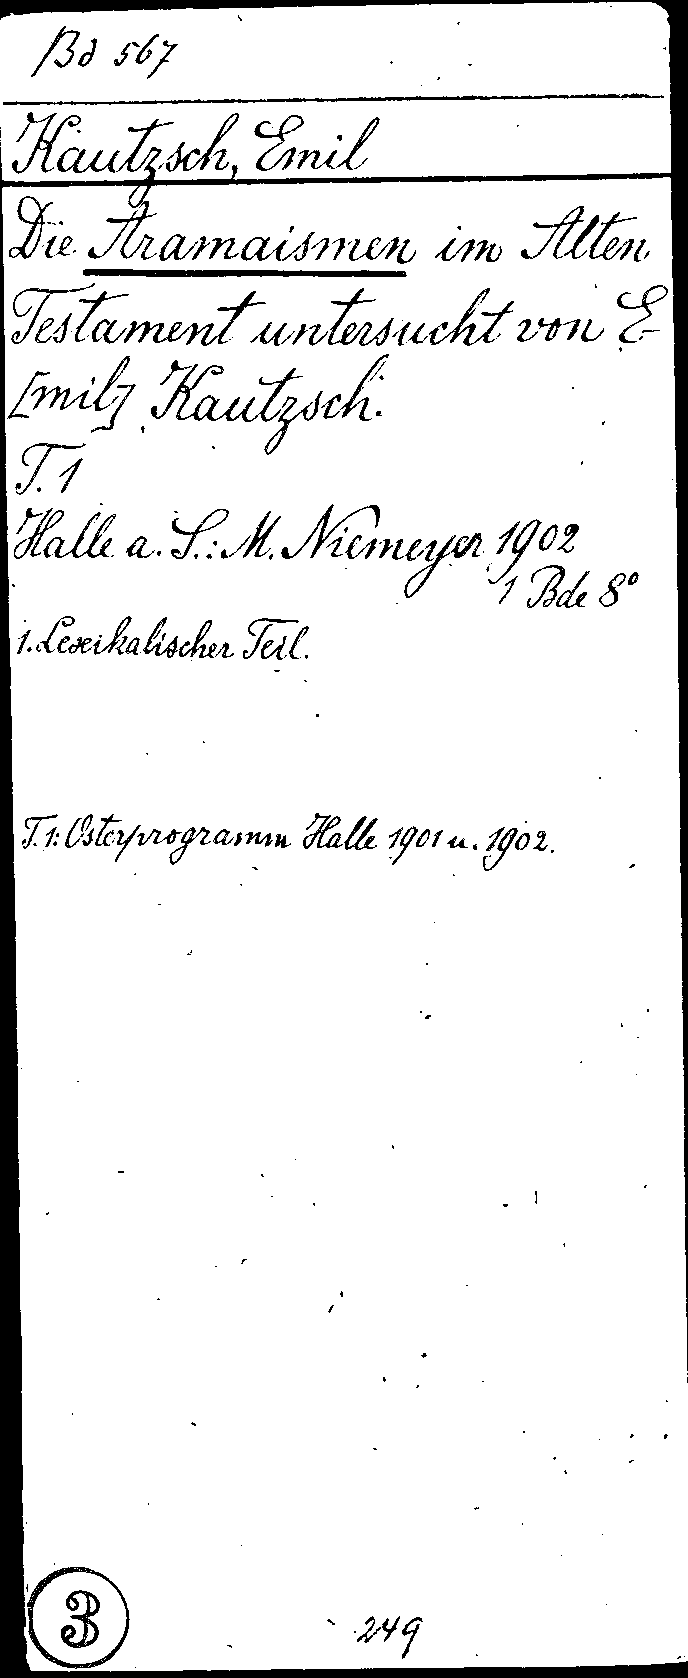 Bd 567
Kautzsch, Emil
Die Aramaismen im Alten
Testament untersucht von E-
[mil] Kautzsch.
T. 1
Halle a. S.: M. Niemeyer 1902
1 Bde 8°
1. Lexikalischer Teil.
T. 1: Osterprogramm Halle 1901 u. 1902.
3
249